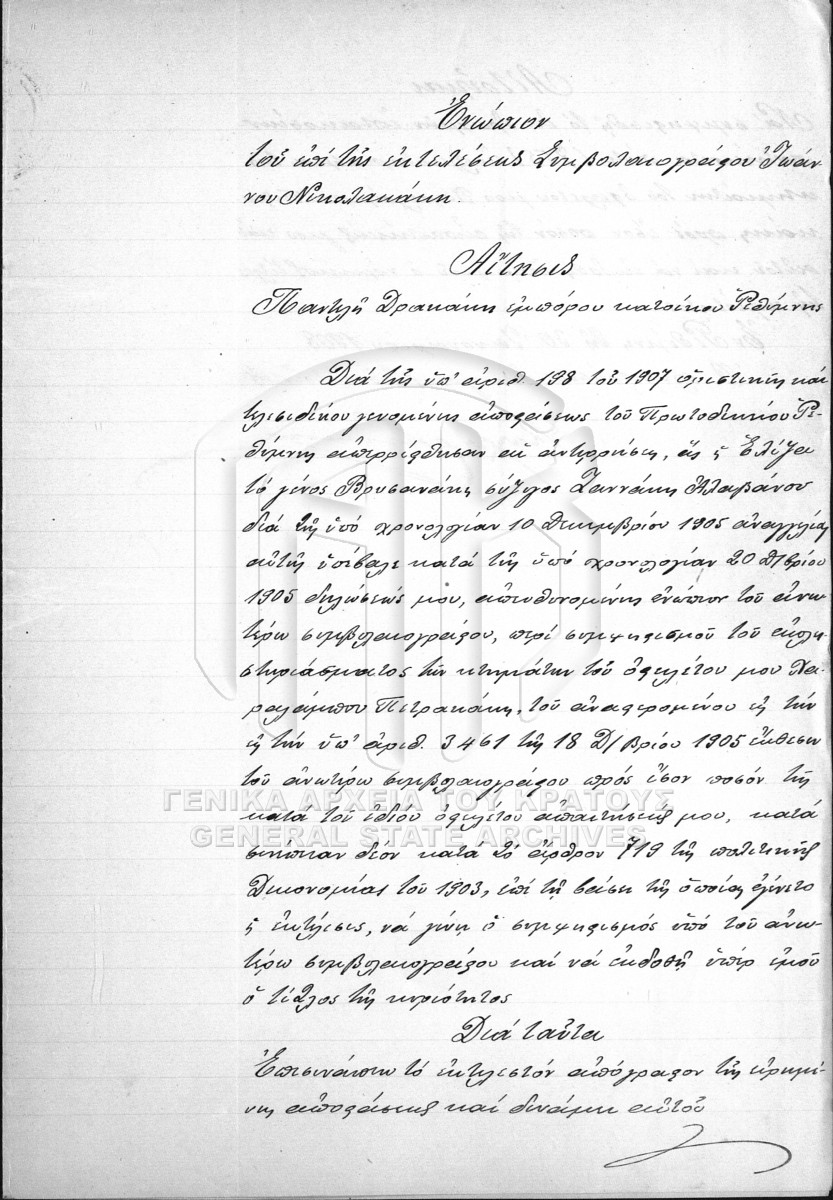 Ἐνώπιον
τοῦ ἐπί τῆς ἐκτελέσεως Συμβολαιογράφου Ἰωάν
νου Νικολακάκη.
Αἴτησις
Παντελῆ Δρακάκη ἐμπόρου κατοίκου Ῥεθύμνης
Διά τῆς ὑπ' ἀριθ. 198 τοῦ 1907 ὁριστικῆς καί
τελεσιδίκου γενομένης ἀποφάσεως τοῦ Πρωτοδικείου Ῥε-
θύμνης ἀπερρίφθησαν αἱ ἀντιρρήσεις, ἅς ἡ Ἑλίζα
τό γένος Βρυσανάκη σύζυγος Ζαννάκη Ἀλαβάνου
διά τῆς ὑπό χρονολογίαν 10 Δεκεμβρίου 1905 ἀναγγελίας
αὐτῆς ὑπέβαλε κατά τῆς ὑπό χρονολογίαν 20 Δ/βρίου
1905 δηλώσεώς μου, ἀπευθυνομένης ἐνώπιον τοῦ ἀνω-
τέρω συμβολαιογράφου, περί συμψηφισμοῦ τοῦ ἐκπλει-
στηριάσματος τῶν κτημάτων τοῦ ὀφειλέτου μου Χα-
ραλάμπου Πετρακάκη, τοῦ ἀναφερομένου εἰς τήν
εἰς τήν ὑπ' ἀριθ. 3461 τῆς 18 Δ/βρίου 1905 ἔκθεσιν
τοῦ ἀνωτέρω συμβολαιογράφου πρός ἴσον ποσόν τῆς
κατά τοῦ ἰδίου ὀφειλέτου ἀπαιτήσεώς μου, κατά
συνέπειαν δέον κατά τό ἄρθρον 719 τῆς πολιτικῆς
Δικονομίας τοῦ 1903, ἐπί τῇ βάσει τῆς ὁποίας ἐγένετο
ἡ ἐκτέλεσις, νά γίνῃ ὁ συμψηφισμός ὑπό τοῦ ἀνω-
τέρω συμβολαιογράφου καί νά ἐκδοθῇ ὑπέρ ἐμοῦ
ὁ τίτλος τῆς κυριότητος
Διά ταῦτα
Ἐπισυνάπτω τό ἐκτελεστόν ἀπόγραφον τῆς εἰρημέ-
νης ἀποφάσεως καί δυνάμει αὐτοῦ
ΓΕΝΙΚΑ ΑΡΧΕΙΑ ΤΟΥ ΚΡΑΤΟΥΣ
GENERAL STATE ARCHIVES